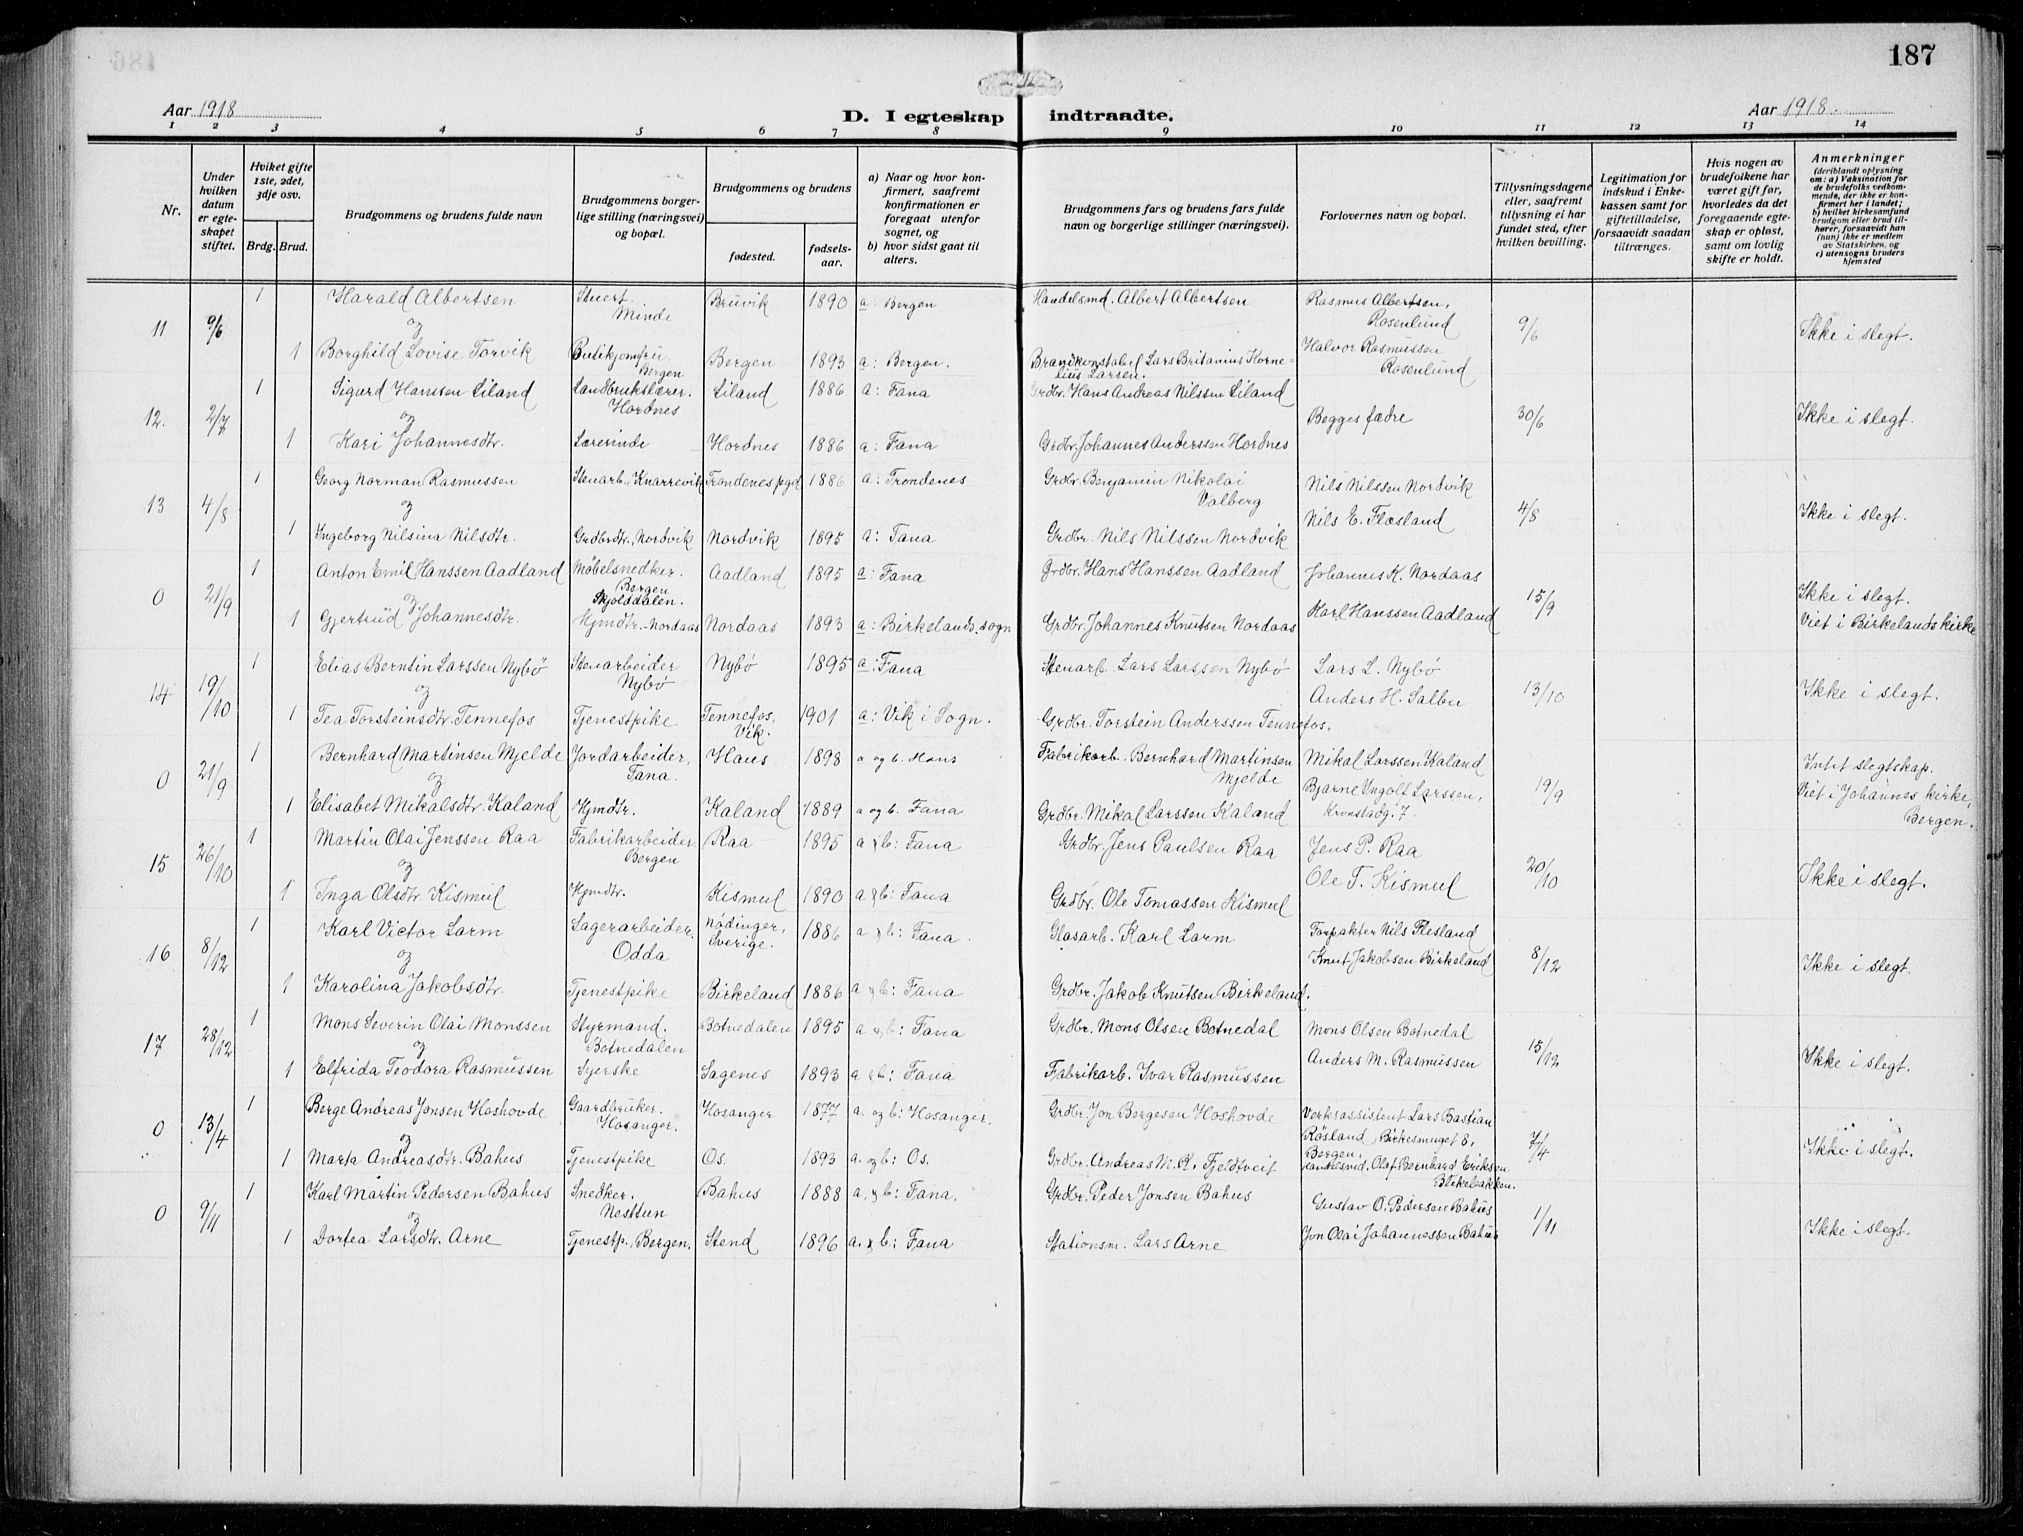 187
Aar 1918
D. I egteskap indtraadte.
Aar 1918.
1 2 3 4 5 6 7 8 9 10 11 12 13 14
Nr.
Under hvilken datum er egteskapet stiftet.
Hviket gifte 1ste, 2det, 3dje osv.
Brdg. Brud.
Brudgommens og brudens fulde navn
Brudgommens borgerlige stilling (næringsvei) og bopæl.
Brudgommens og brudens
fødested.
fødselsaar.
a) Naar og hvor konfirmert, saafremt konfirmationen er foregaat utenfor sognet, og
b) hvor sidst gaat til alters.
Brudgommens fars og brudens fars fulde navn og borgerlige stillinger (næringsvei).
Forlovernes navn og bopæl.
Tillysningsdagene eller, saafremt tillysning ei har fundet sted, efter hvilken bevilling.
Legitimation for indskud i Enkekassen samt for giftetilladelse, forsaavidt saadan tiltrænges.
Hvis nogen av brudefolkene har været gift før, hvorledes da det foregaaende egteskap er opløst, samt om lovlig skifte er holdt.
Anmerkninger (deriblandt oplysning om: a) Vaksination for de brudefolks vedkommende, der ikke er konfirmert her i landet; b) hvilket kirkesamfund brudgom eller brud tilhører, forsaavidt han (hun) ikke er medlem av Statskirken, og c) utensogns bruders hjemsted
11 9/6 1 Harald Albertsen Stuert. Minde Bruvik 1890 a: Bergen Handelsmd. Albert Albertsen Rasmus Albertsen, Rosenlund 9/6 Ikke i slegt.
og
1 Borghild Lovise Torvik Butikjomfru Bergen Bergen 1893 a: Bergen. Brandkonstabel Lars Britanius Kornelius Larsen. Halvor Rasmussen Rosenlund
12. 2/7 1 Sigurd Hanssen Liland Landbrukslærer. Hordnes Liland 1886 a: Fana Grdbr. Hans Andreas Nilssen Liland Begges fædre 30/6 Ikke i slegt.
og
1 Kari Johannesdtr. Lærerinde Hordnes 1886 a: Fana Grdbr. Johannes Anderssen Hordnes
13 4/8 1 Georg Norman Rasmussen Stenarb., Knarrevik Trondenes pgd 1886 a: Trondenes Grdbr. Benjamin Nikolai Valberg Nils Nilssen Nordvik 4/8 Ikke i slegt.
og
1 Ingeborg Nilsina Nilsdtr. Grdbrdtr., Nordvik Nordvik 1895 a: Fana Grdbr. Nils Nilssen Nordvik Nils E. Flæsland
0 21/9 1 Anton Emil Hanssen Aadland Møbelsnedker. Bergen Skjolddalen. Aadland 1895 a: Fana Grdbr. Hans Hanssen Aadland Johannes K. Nordaas 15/9 Ikke i slegt.
og
1 Gjertrud Johannesdtr. Hjmdtr. Nordaas Nordaas 1893 a: Birkelands sogn Grdbr. Johannes Knutsen Nordaas Karl Hanssen Aadland Viet i Birkelands kirke
14 19/10 1 Elias Berntin Larssen Nybø Stenarbeider Nybø Nybø 1895 a: Fana Stenarb. Lars Larssen Nybø Lars L. Nybø 13/10 Ikke i slegt.
og
1 Tea Torsteinsdtr. Tennefos Tjenestpike Tennefos, Vik. 1901 a: Vik i Sogn. Grdbr. Torstein Anderssen Tennefos. Anders H. Salbu
0 21/9 1 Bernhard Martinsen Mjelde Jordarbeider, Fana. Haus 1898 a og b. Haus Fabrikarb. Bernhard Martinsen Mjelde Mikal Larssen Kaland 19/9 Intet slegtskap.
og
1 Elisabet Mikalsdtr. Kaland Hjmdtr. Kaland 1889 a og b. Fana Grdbr. Mikal Larssen Kaland Bjarne Ingolf Larssen, Kronstadg. 7. Viet i Johannes kirke, Bergen.
15 26/10 1 Martin Olai Jenssen Raa Fabrikarbeider Bergen Raa 1895 a & b: Fana Grdbr. Jens Paulsen Raa Jens P. Raa 20/10 Ikke i slegt.
og
1 Inga Olsdtr. Kismul Hjmdtr. Kismul 1890 a & b: Fana Grdbr. Ole Tomassen Kismul Ole T. Kismul
16 8/12 1 Karl Victor Larm Lagerarbeider. Odda Nödinger, Sverige. 1886 a & b: Fana. Glasarb. Karl Larm Forpakter Nils Flesland 8/12 Ikke i slegt.
og
1 Karolina Jakobsdtr. Tjenestpike Birkeland 1886 a & b: Fana Grdbr. Jakob Knutsen Birkeland. Knut Jakobsen Birkeland
17 28/12 1 Mons Severin Olai Monssen Styrmand. Botnedalen Botnedalen 1895 a & b: Fana Grdbr. Mons Olsen Botnedal Mons Olsen Botnedal 15/12 Ikke i slegt.
og
1 Elfrida Teodora Rasmussen Syerske Sagenes 1893 a & b: Fana Fabrikarb. Ivar Rasmussen Anders M. Rasmussen
0 13/4 1 Berge Andreas Jonsen Hoshovde Gaardbruker. Hosanger. Hosanger 1877 a. og b: Hosanger. Grdbr. Jon Bergesen Hoshovde Verksassistent Lars Bastian Røsland, Birkesmuget 8, Bergen, 7/4 Ikke i slegt.
og
1 Marta Andreasdtr. Bahus Tjenestpike Os. 1893 a. og b: Os. Grdbr. Andreas M. K. Fjeldtveit Landresvid. Olaf Bernhard Eriksen Birkebakken.
0 9/11 1 Karl Martin Pedersen Bahus Snedker. Nesttun Bahus 1888 a. & b: Fana. Grdbr. Peder Jonsen Bahus Gustav O. Pedersen Bahus 1/11 Ikke i slegt.
og
1 Dortea Larsdtr. Arne Tjenestp., Bergen. Stend 1896 a. & b: Fana Stationsm. Lars Arne Jon Olai Johannessen Bahus